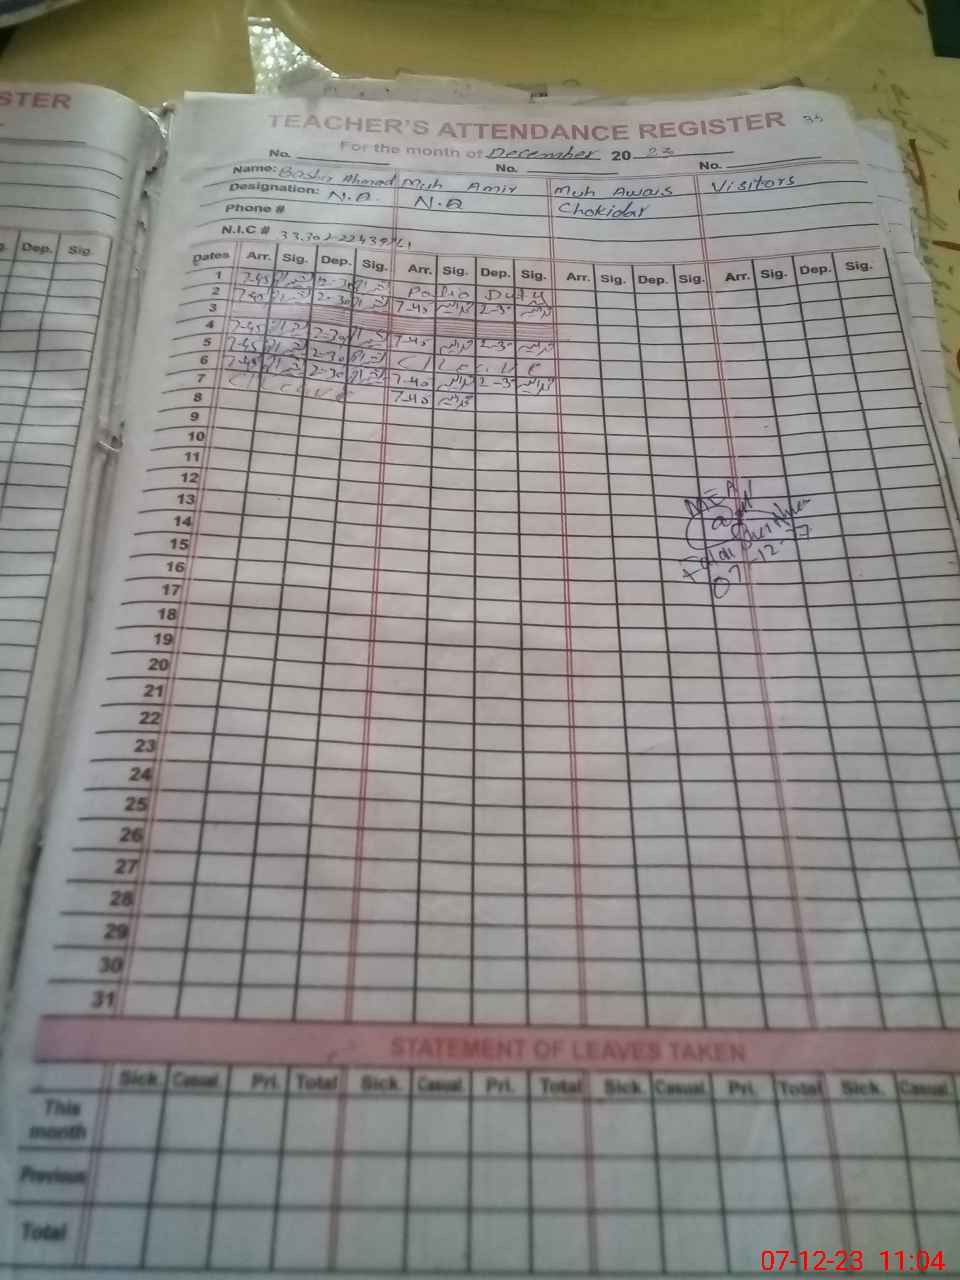 STER
TEACHER'S ATTENDANCE REGISTER 35
For the month of December 20 23
No. No. No.
Name: Bashir Ahmad Muh Amir Muh Awais Visitors
Designation: N.A. N.A Chokidar
Phone #
N.I.C #
Dep. Sig.
Dates Arr. Sig. Dep. Sig. Arr. Sig. Dep. Sig. Arr. Sig. Dep. Sig. Arr. Sig. Dep. Sig.
1 7-45 2-30 Polio Duty
2 7-45 2-30 7-45 2-3
3
4 7-45 2-30 7-45 2-3
5 7-45 2-30 C/Leave
6 7-45 2-30 7-45 2-3
7 C/Leave 7-45
8
9
10
11
12
13
14
15
16
17
18
19
20
21
22
23
24
25
26
27
28
29
30
31
MEA
07-12-
STATEMENT OF LEAVES TAKEN
Sick. Casual. Pri. Total Sick. Casual. Pri. Total Sick. Casual. Pri. Total Sick. Casual.
This month
Previous
Total
07-12-23 11:04